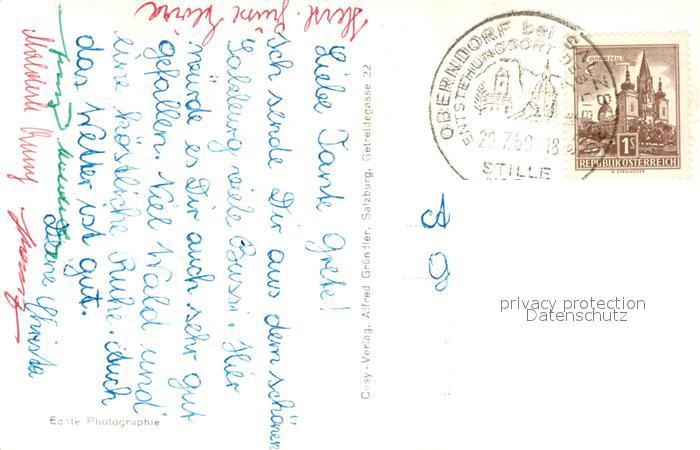 Liebe Tante Grete!
Ich sende Dir aus dem schönen
Salzburg viele Bussi. Hier
würde es Dir auch sehr gut
gefallen. Viel Wald und
eine köstliche Ruhe. Auch
das Wetter ist gut.
Deine Christa
Herzl. Grüsse
Echte Photographie
Cosy-Verlag, Alfred Gründler, Salzburg, Getreidegasse 22
OBERNDORF bei SALZBURG
ENTSTEHUNGSORT DES LIEDES
20.7.60-18
STILLE
MARIAZELL
1S
REPUBLIK ÖSTERREICH
privacy protection
Datenschutz